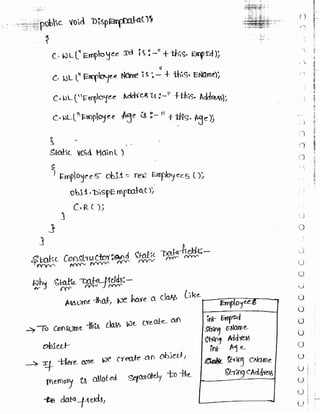 public void DispEmpData()
{
C.WL("Employee Id is:-" + this.EmpId);
C.WL("Employee Name is:-" + this.EName);
C.WL("Employee Address is:-" + this.Address);
C.WL("Employee Age is:-" + this.Age);
}
static void Main()
{
Employee5 obj1 = new Employee5();
obj1.DispEmpData();
C.R();
}
}
}
Static Constructor and Static Data fields:-
Why Static Data fields:-
Assume that, we have a class like
→ To consume this class we create an
object
→ If there we create an object,
memory is alloted separately to the
data fields,
Employee6
int EmpId
string EName
string Address
int Age
string CName
string CAddress